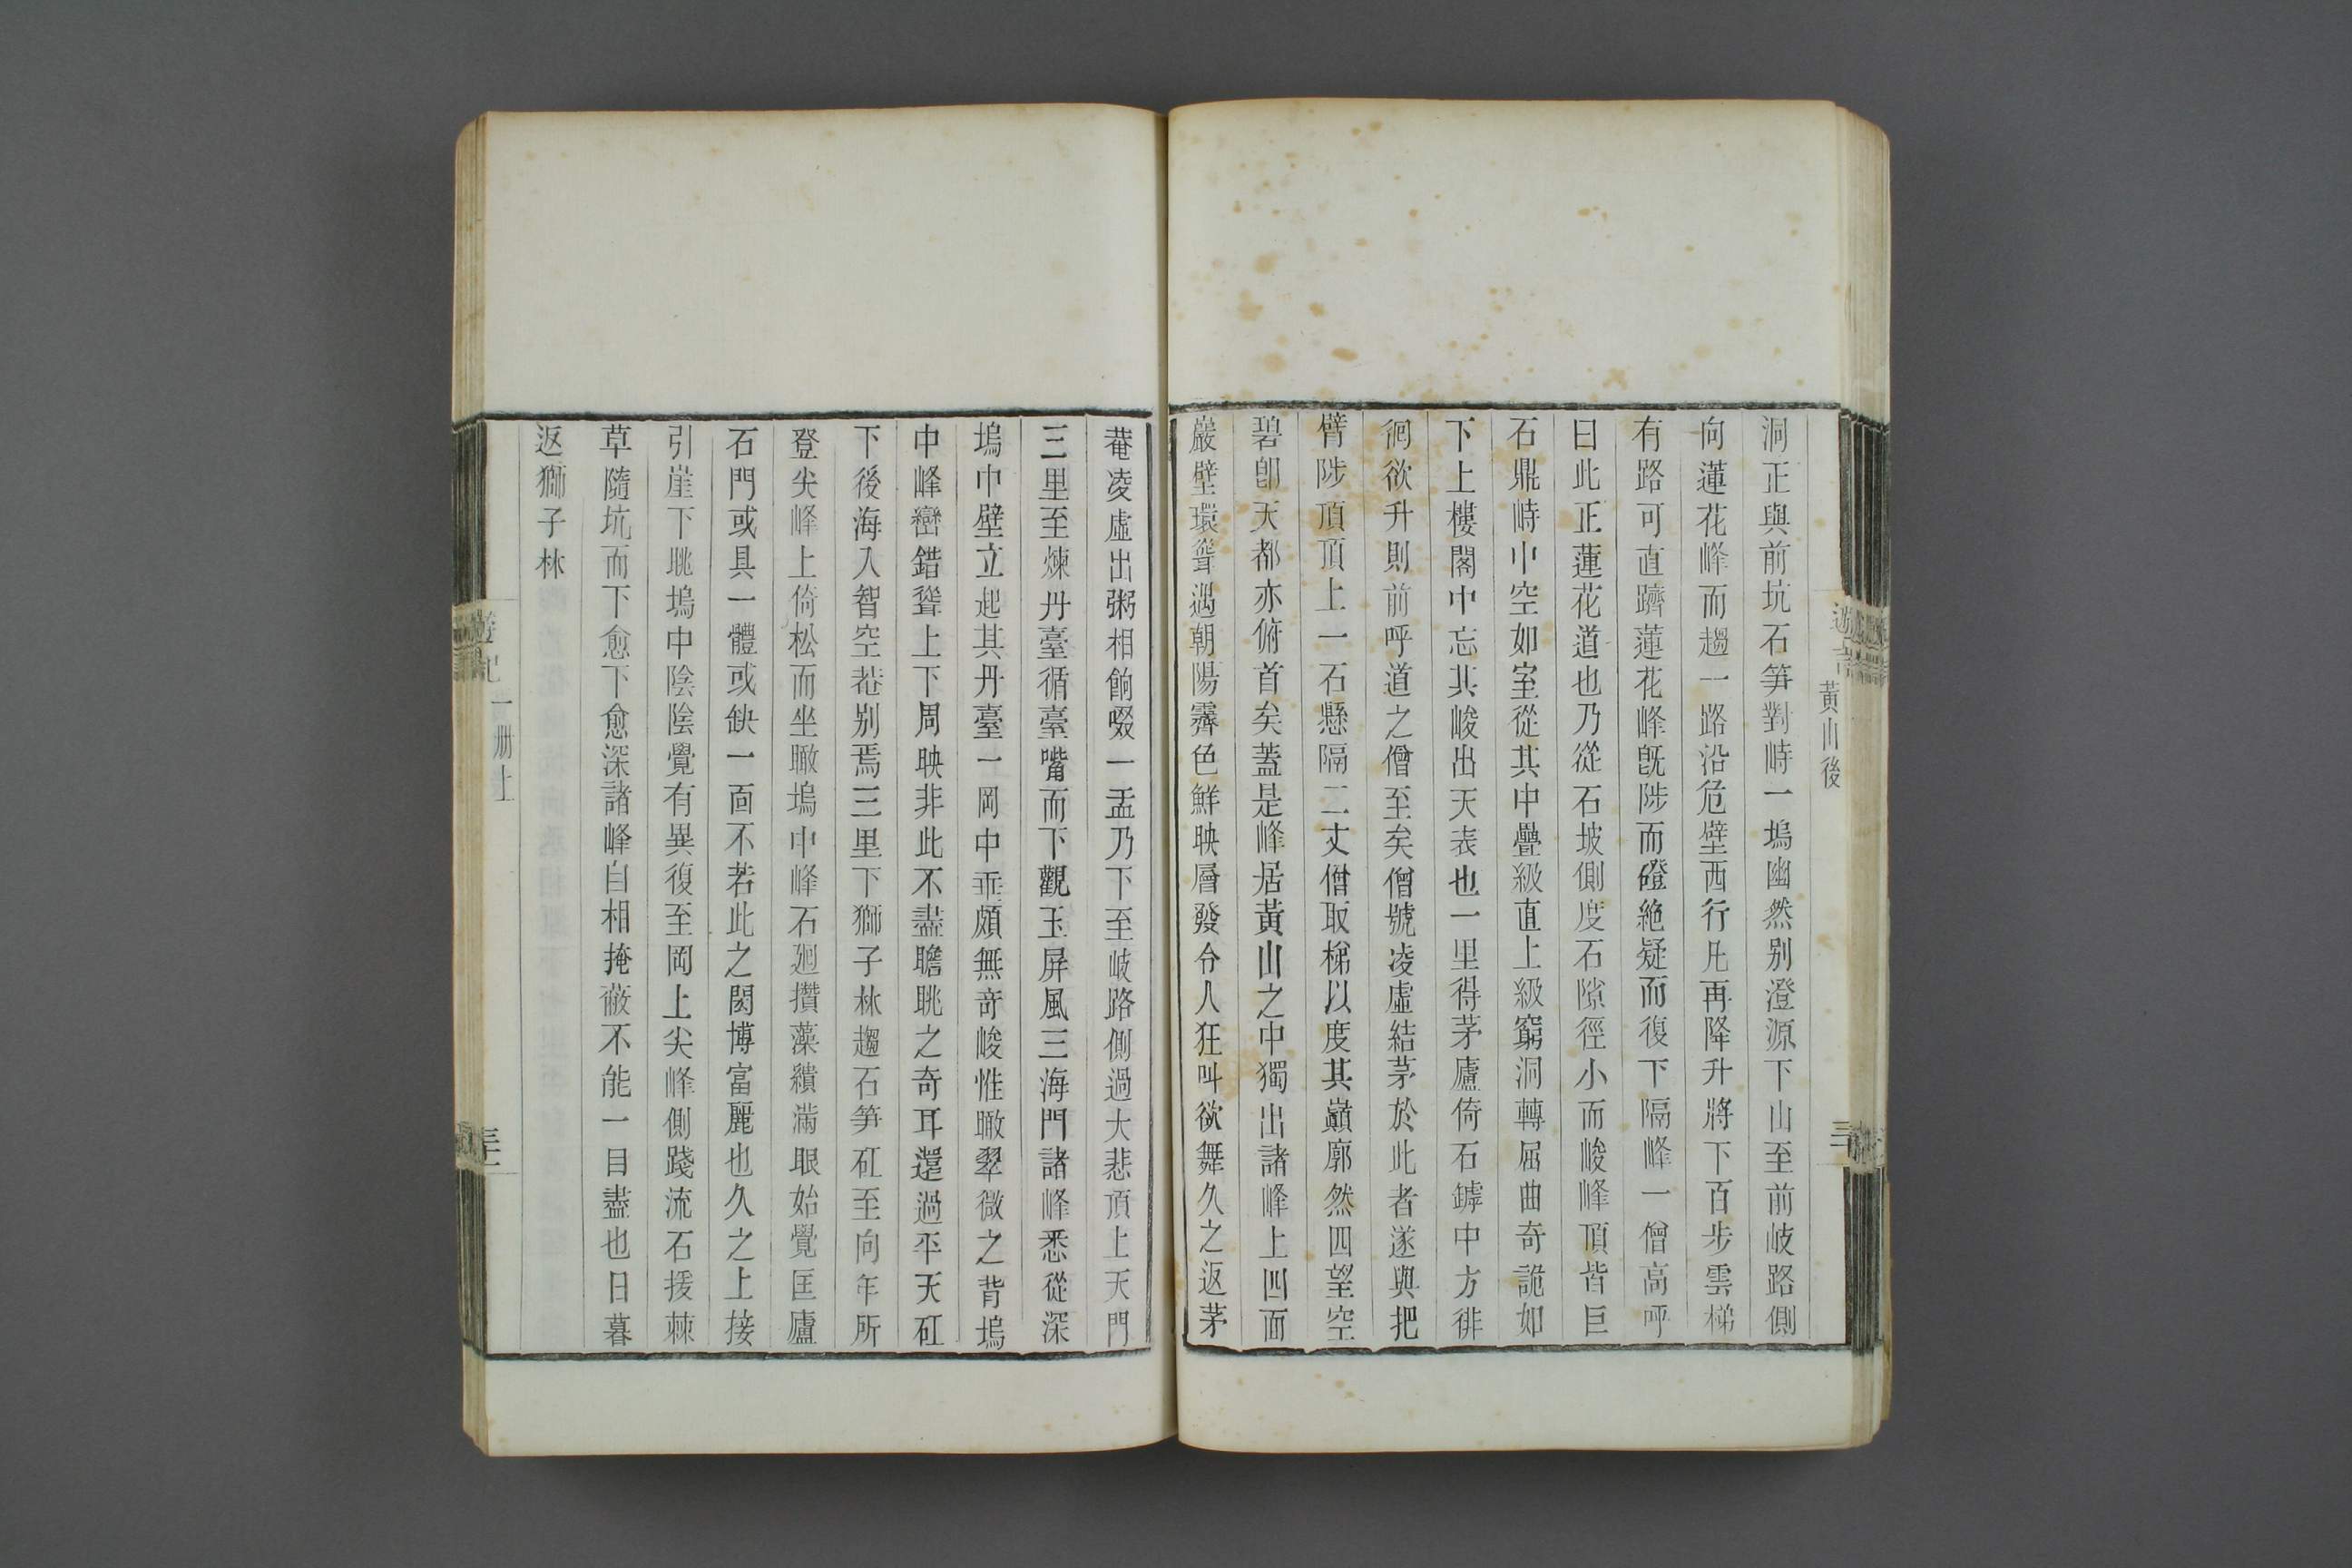 黃山後
洞正與前坑石筍對峙一塢幽然别澄源下山至前岐路側
向蓮花峰而趨一路沿危壁西行凡再降升將下百步雲梯
有路可直躋蓮花峰旣陟而磴絶疑而復下隔峰一僧高呼
曰此正蓮花道也乃從石坡側度石隙徑小而峻峰頂皆巨
石鼎峙中空如室從其中疊級直上級窮洞轉屈曲奇詭如
下上樓閣中忘其峻出天表也一里得茅廬倚石罅中方徘
徊欲升則前呼道之僧至矣僧號凌虛結茅於此者遂與把
臂陟頂頂上一石懸隔二丈僧取梯以度其巔廓然四望空
碧卽天都亦俯首矣蓋是峰居黃山之中獨出諸峰上四面
巖壁環聳遇朝陽霽色鮮映層發令人狂叫欲舞久之返茅
菴凌虛出粥相餉啜一盂乃下至岐路側過大悲頂上天門
三里至煉丹臺循臺嘴而下觀玉屏風三海門諸峰悉從深
塢中壁立起其丹臺一岡中垂頗無奇峻惟瞰翠微之背塢
中峰巒錯聳上下周映非此不盡瞻眺之奇耳還過平天矼
下後海入智空菴别焉三里下獅子林趨石筍矼至向年所
登尖峰上倚松而坐瞰塢中峰石廻攢藻繢滿眼始覺匡廬
石門或具一體或缺一面不若此之閎博富麗也久之上接
引崖下眺塢中陰陰覺有異復至岡上尖峰側踐流石援棘
草隨坑而下愈下愈深諸峰自相掩蔽不能一目盡也日暮
返獅子林
遊記
一册上